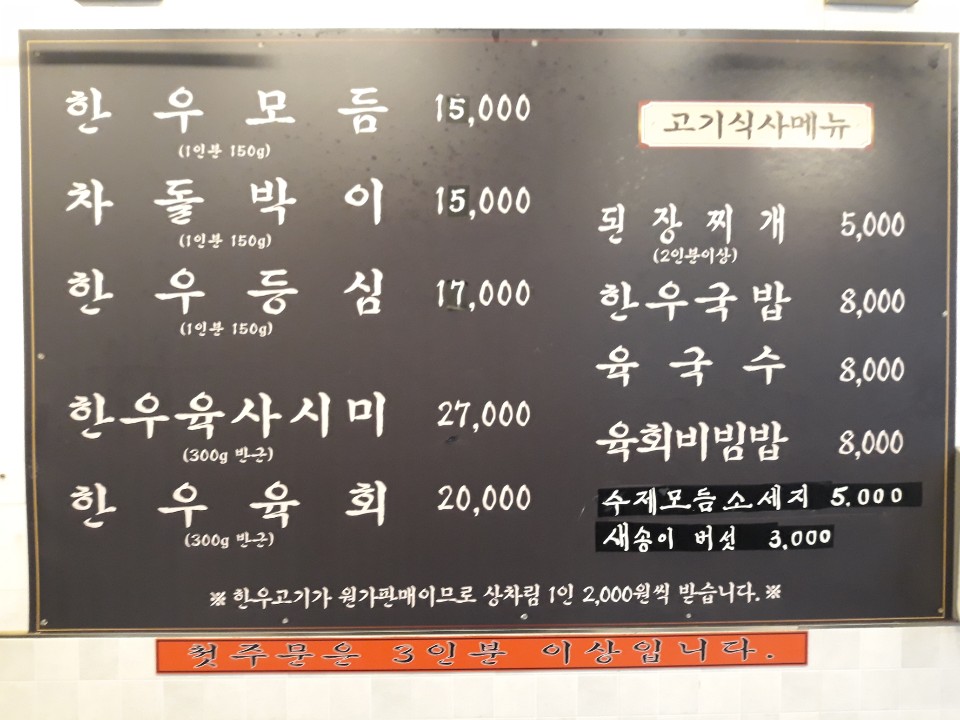 한우모듬 15,000
(1인분 150g)
차돌박이 15,000
(1인분 150g)
한우등심 17,000
(1인분 150g)
한우육사시미 27,000
(300g 반근)
한우육회 20,000
(300g 반근)
고기식사메뉴
된장찌개 5,000
(2인분이상)
한우국밥 8,000
육국수 8,000
육회비빔밥 8,000
수제모듬소세지 5.000
새송이 버섯 3,000
※ 한우고기가 원가판매이므로 상차림 1인 2,000원씩 받습니다. ※
첫주문은 3인분 이상입니다.